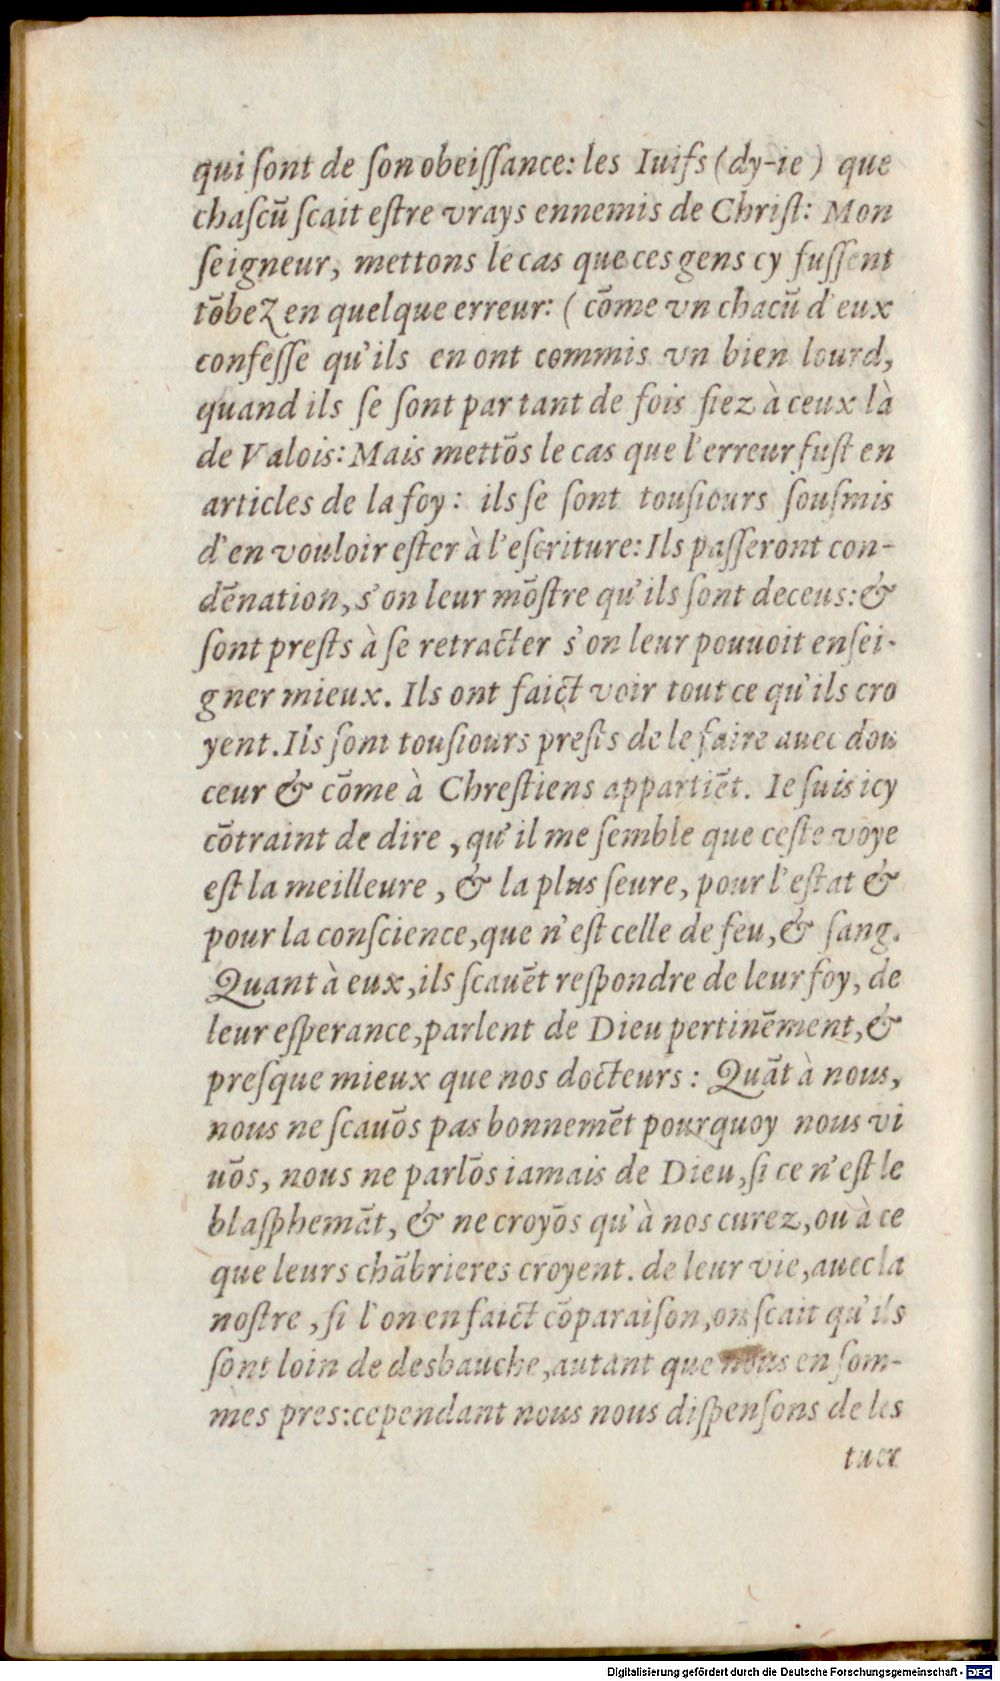 qui ſont de ſon obeiſſance: les Iuifs (dy-ie) que
chaſcũ ſcait eſtre vrays ennemis de Chriſt: Mon
ſeigneur, mettons le cas que ces gens cy fuſſent
tõbez en quelque erreur: (cõme vn chacũ d'eux
confeſſe qu'ils en ont commis vn bien lourd,
quand ils ſe ſont par tant de fois fiez à ceux là
de Valois: Mais mettõs le cas que l'erreur fuſt en
articles de la foy: ils ſe ſont touſiours ſouſmis
d'en vouloir eſter à l'eſcriture: Ils paſſeront con-
dẽnation, s'on leur mõſtre qu'ils ſont deceus: &
ſont preſts à ſe retracter s'on leur pouuoit enſei-
gner mieux. Ils ont faict voir tout ce qu'ils cro
yent. Ils ſont touſiours preſts de le faire auec dou
ceur & cõme à Chreſtiens appartiẽt. Ie ſuis icy
cõtraint de dire, qu'il me ſemble que ceſte voye
eſt la meilleure, & la plus ſeure, pour l'eſtat &
pour la conſcience, que n'eſt celle de feu, & ſang.
Quant à eux, ils ſcauẽt reſpondre de leur foy, de
leur eſperance, parlent de Dieu pertinẽment, &
preſque mieux que nos docteurs: Quãt à nous,
nous ne ſcauõs pas bonnemẽt pourquoy nous vi
uõs, nous ne parlõs iamais de Dieu, ſi ce n'eſt le
blaſphemãt, & ne croyõs qu'à nos curez, ou à ce
que leurs chãbrieres croyent. de leur vie, auec la
noſtre, ſi l'on en faict cõparaiſon, on ſcait qu'ils
ſont loin de desbauche, autant que nous en ſom-
mes pres: cependant nous nous diſpenſons de les
tuer
Digitalisierung gefördert durch die Deutsche Forschungsgemeinschaft - DFG